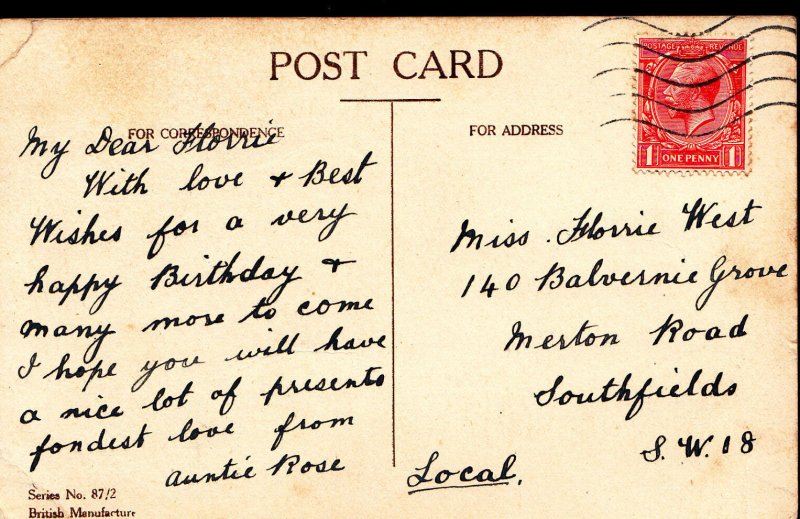 POST CARD
FOR CORRESPONDENCE
My Dear Florrie
With love & Best
Wishes for a very
happy Birthday &
many more to come
I hope you will have
a nice lot of presents
fondest love from
Auntie Rose
Series No. 87/2
British Manufacture
FOR ADDRESS
POSTAGE REVENUE
1 ONE PENNY 1
Miss. Florrie West
140 Balvernie Grove
Merton Road
Southfields
S.W.18
Local.